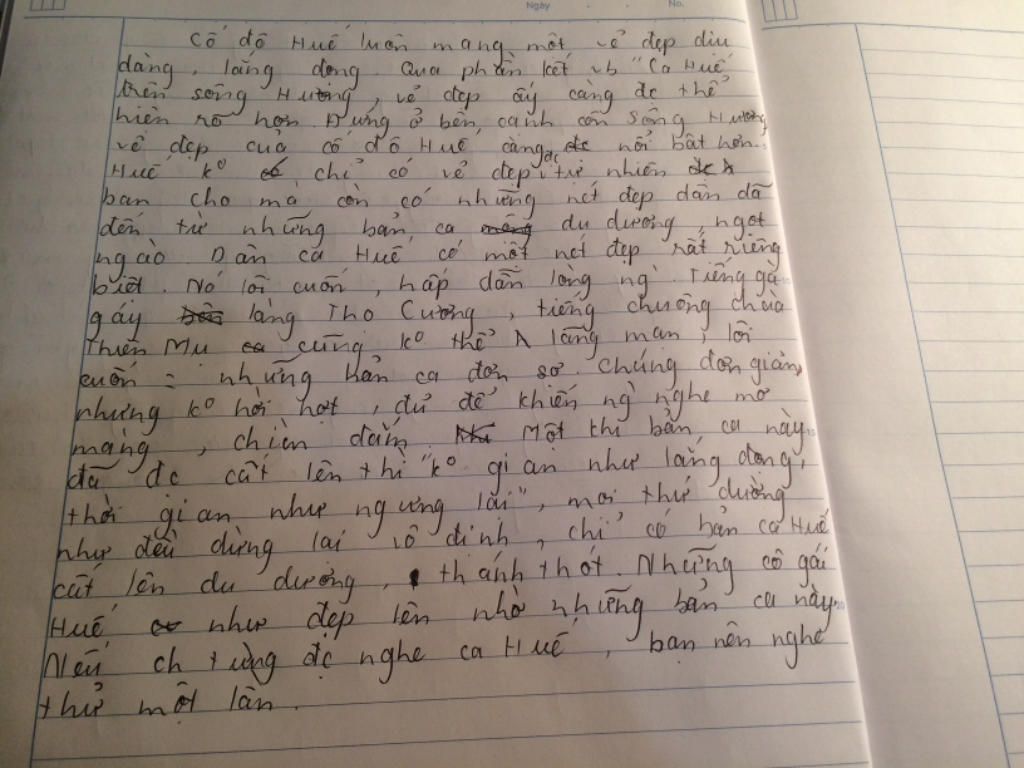 Ngày No.
Cố đô Huế luôn mang một vẻ đẹp dịu
dàng, lắng đọng. Qua phần kết vb "Ca Huế
trên sông Hương, vẻ đẹp ấy càng đc thể
hiện rõ hơn. Đứng ở bên cạnh con sông Hương
vẻ đẹp của cố đô Huế càng đc nổi bật hơn.
Huế ko chỉ có vẻ đẹp tự nhiên
ban cho mà còn có những nét đẹp dân dã
đến từ những bản ca du dương, ngọt
ngào. Dân ca Huế có một nét đẹp rất riêng
biệt. Nó lôi cuốn, hấp dẫn lòng ng`. Tiếng gà
gáy làng Thọ Cương, tiếng chuông chùa
Thiên Mụ cũng ko thể lãng mạn, lôi
cuốn = những bản ca đơn sơ. Chúng đơn giản,
nhưng ko hời hợt, đủ để khiến ng` nghe mơ
màng, chìm đắm. Một khi bản ca này
đã đc cất lên thì "ko gian như lắng đọng,
thời gian như ngưng lại", mọi thứ dường
như đều dừng lại vô định, chỉ có bản ca Huế
cất lên du dương, thánh thót. Những cô gái
Huế như đẹp lên nhờ những bản ca này.
Nếu ch từng đc nghe ca Huế, bạn nên nghe
thử một lần.